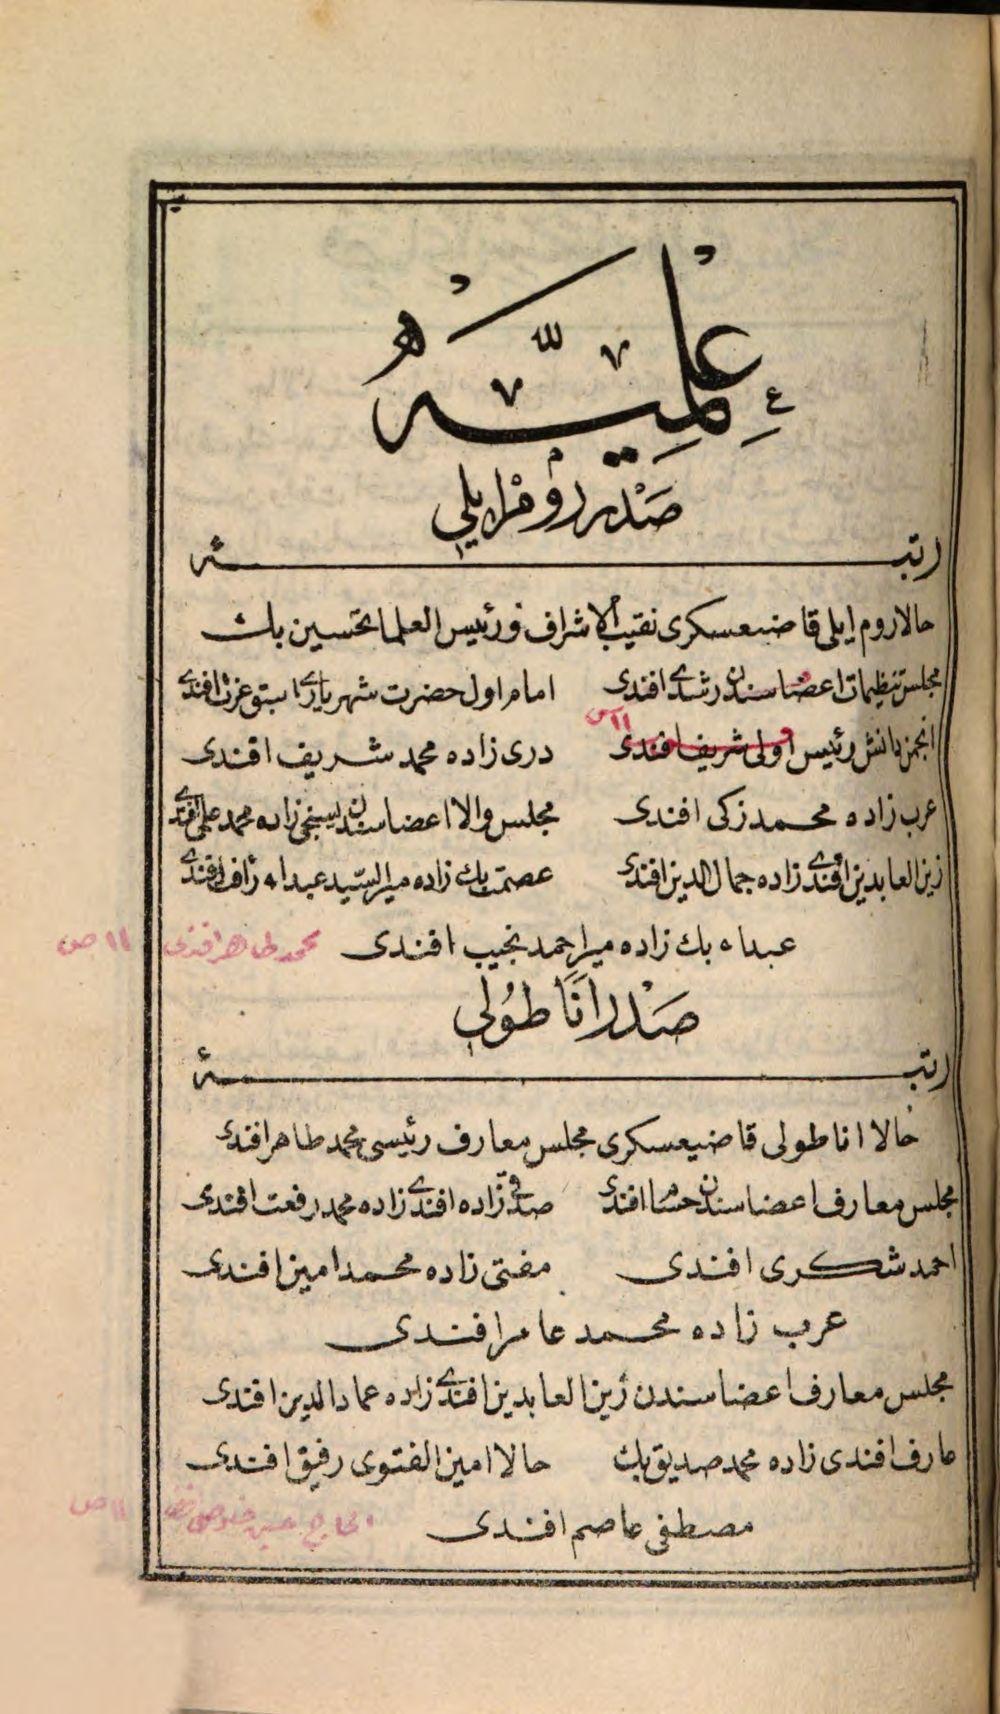 علميه
صدر روم ايلی
رتبه
حالا روم ايلی قاضيعسكری نقيب الاشراف و رئيس العلما تحسين بك
مجلس تنظيمات اعضاسندن رشدی افندی امام اول حضرت شهرياری عزت افندی
١١ ص
انجمن دانش رئيس اولی شريف افندی دری زاده محمد شريف افندی
عرب زاده محمد زكی افندی مجلس والا اعضاسندن زاده محمد علی افندی
زين العابدين افندی زاده جمال الدين افندی عصمت بك زاده مير السيد عبدالله رأفت افندی
عبدالله بك زاده مير احمد نجيب افندی محمد طاهر افندی ١١ ص
صدر اناطولی
رتبه
حالا اناطولی قاضيعسكری مجلس معارف رئيسی محمد طاهر افندی
مجلس معارف اعضاسندن حسام افندی صدقی زاده افندی زاده محمد رفعت افندی
احمد شكری افندی مفتی زاده محمد امين افندی
عرب زاده محمد عامر افندی
مجلس معارف اعضاسندن زين العابدين افندی زاده عماد الدين افندی
عارف افندی زاده محمد صديق بك حالا امين الفتوی رفيق افندی
مصطفی عاصم افندی الحاج حسين خلوصی ١١ ص